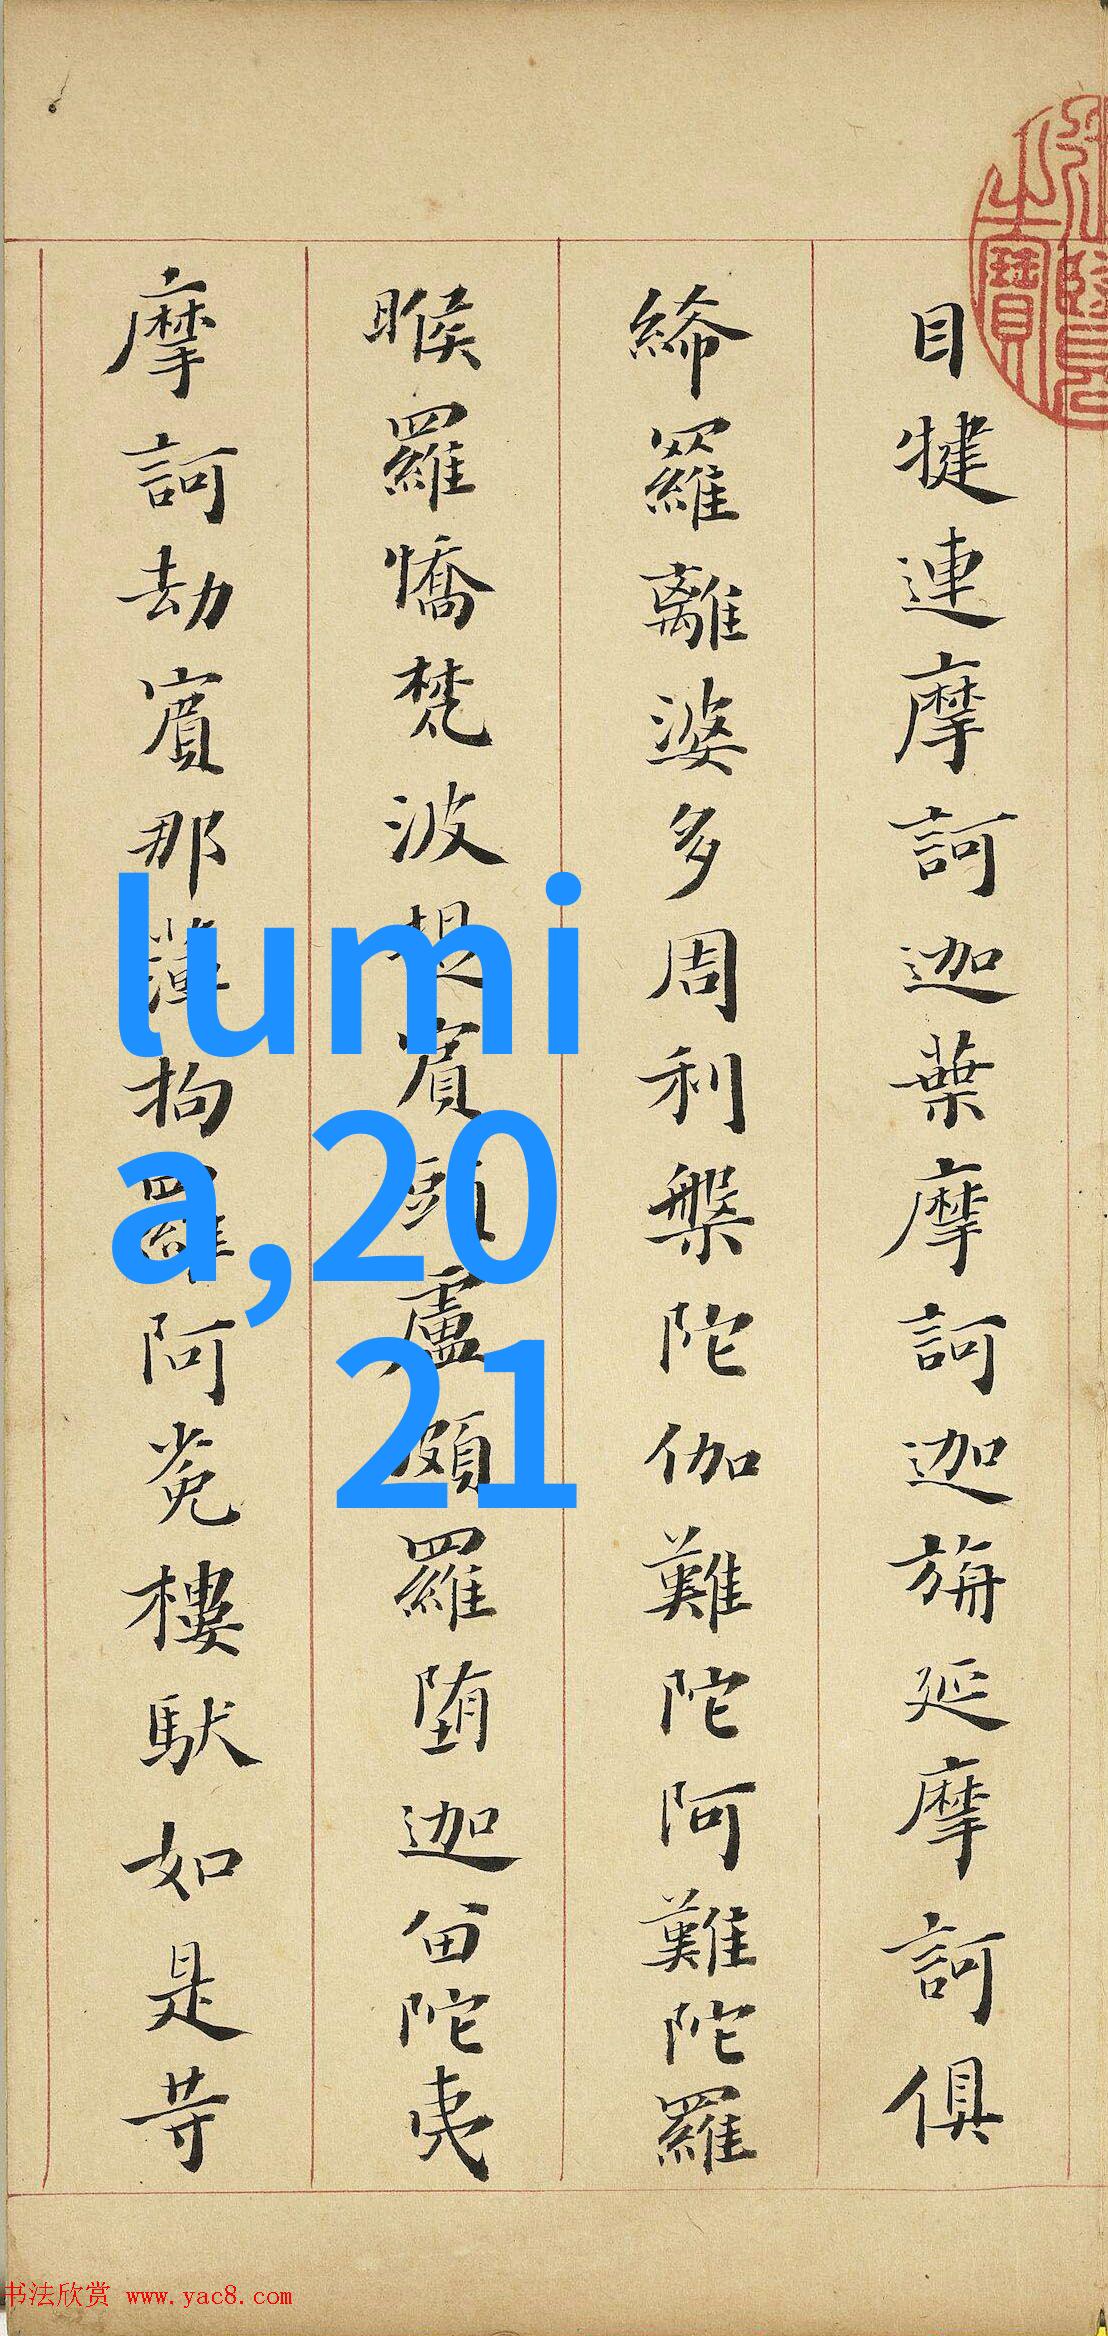 目犍連摩訶迦葉摩訶迦旃延摩訶俱
絺羅離婆多周利槃陀伽難陀阿難陀羅
睺羅憍梵波提賓頭盧頗羅墮迦留陀夷
摩訶劫賓那薄拘羅阿㝹樓馱如是等
之寶
lumi
a,20
21
书法欣赏 www.yac8.com